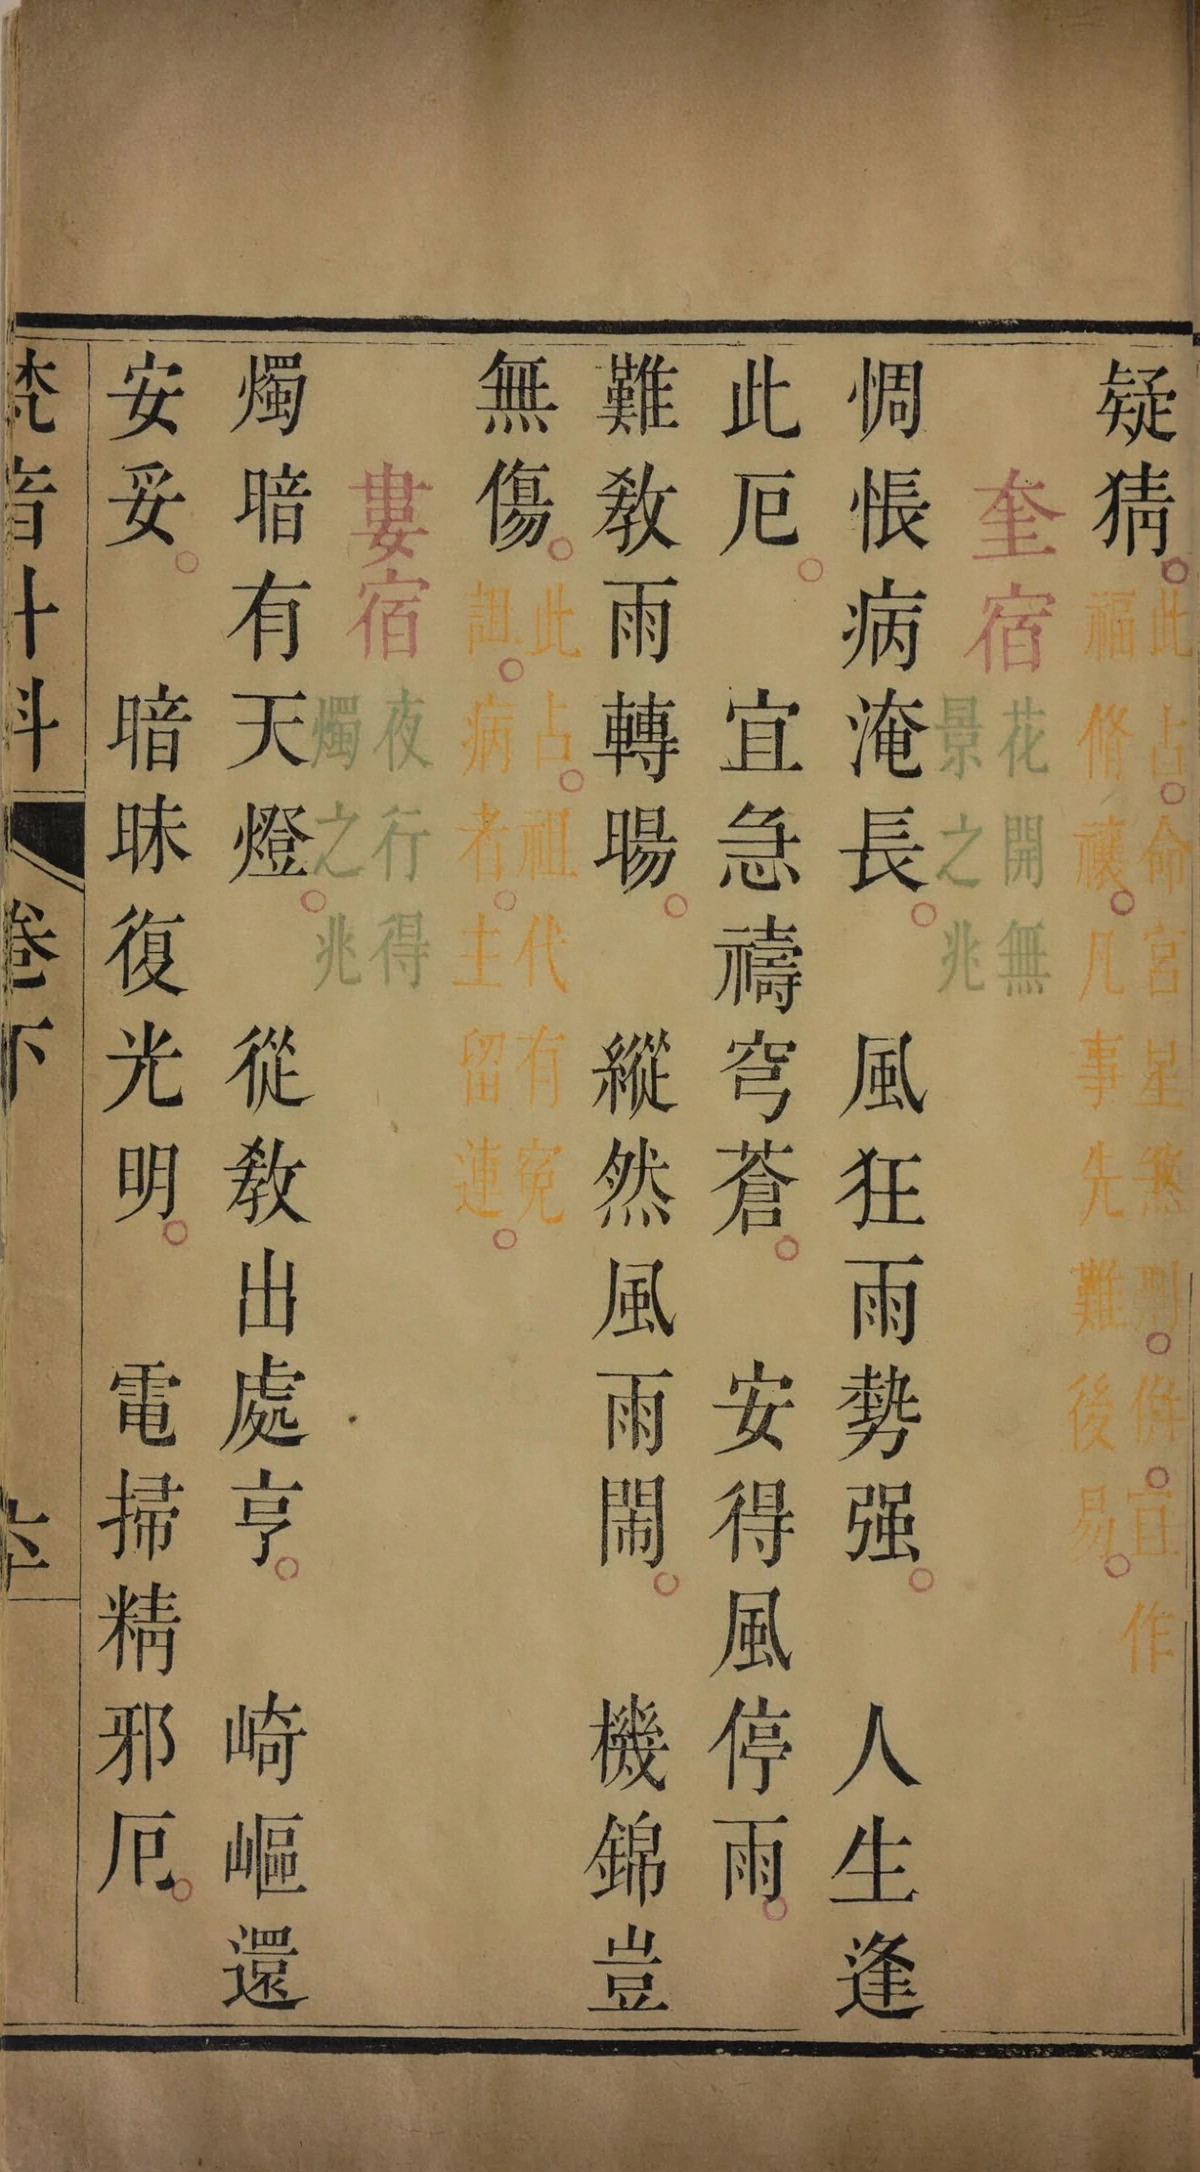 疑猜。此占。命宮星煞刑。併。宜作
福脩禳。凡事先難後易。
奎宿 花開無
景之兆
惆悵病淹長。 風狂雨勢强。 人生逢
此厄。 宜急禱穹蒼。 安得風停雨。
難教雨轉暘。 縱然風雨鬧。 機錦豈
無傷。此占。祖代有冤
詛。病者。主留連。
婁宿 夜行得
燭之兆
燭暗有天燈。 從教出處亨。 崎嶇還
安妥。 暗昧復光明。 電掃精邪厄。
梵音斗科 卷下